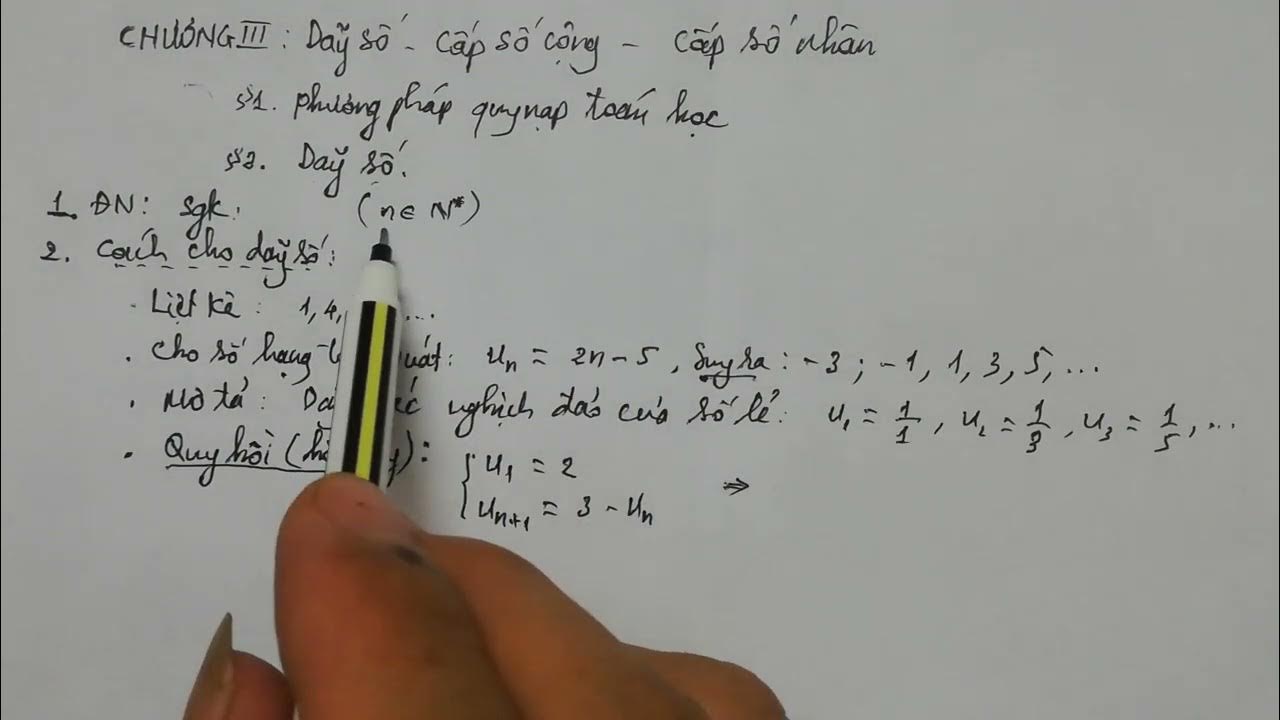 CHƯƠNG III: Dãy số - Cấp số cộng - Cấp số nhân
§1. Phương pháp quy nạp toán học
§2. Dãy số.
1. ĐN: sgk. (n ∈ N*)
2. Cách cho dãy số:
. Liệt kê: 1, 4, ...
. Cho số hạng quát: uₙ = 2n - 5, suy ra: -3; -1, 1, 3, 5, ...
. Mô tả: nghịch đảo của số lẻ: u₁ = 1/1, u₂ = 1/3, u₃ = 1/5, ...
. Quy hồi ( ): { u₁ = 2 ⇒
uₙ₊₁ = 3 - uₙ